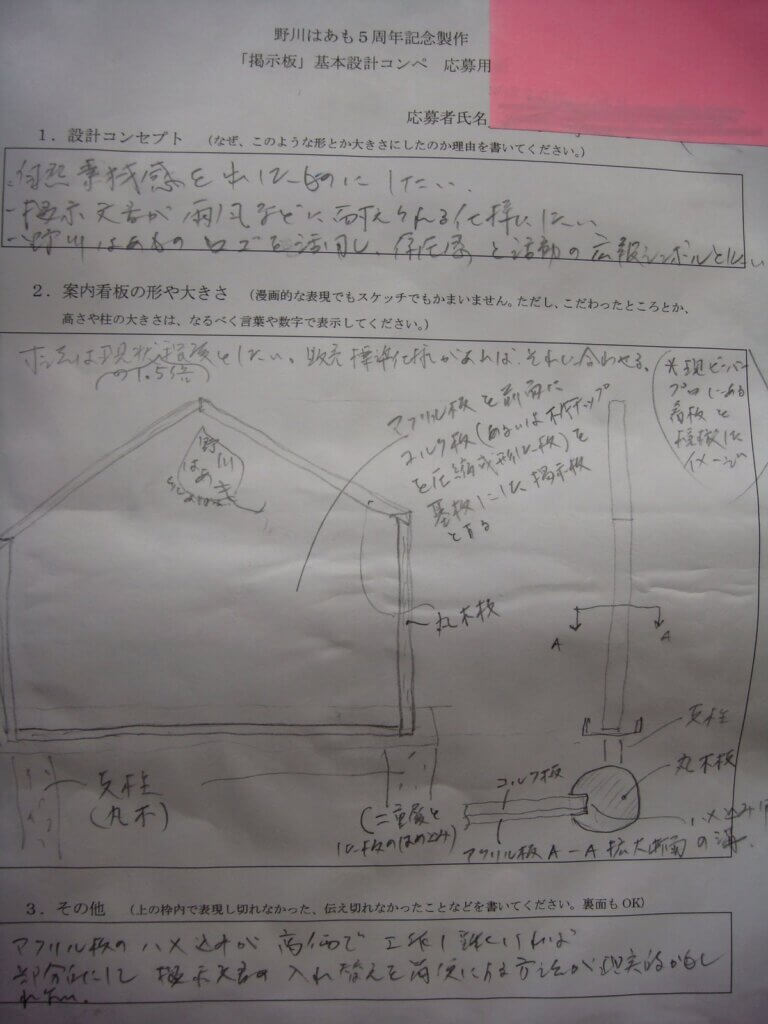 野川はあも5周年記念製作
「掲示板」基本設計コンペ 応募用
応募者氏名
1．設計コンセプト （なぜ、このような形とか大きさにしたのか理由を書いてください。）
自然素材感を出したものにしたい．
－掲示文書が雨風などに耐えられる仕様にしたい
－野川はあものロゴを活用し、存在感と活動の広報シンボルとしたい
2．案内看板の形や大きさ （漫画的な表現でもスケッチでもかまいません。ただし、こだわったところとか、
高さや柱の大きさは、なるべく言葉や数字で表示してください。）
寸法は現状程度としたい。販売標準仕様があれば、それに合わせる。
の1.5倍
看板と
イメージ
アクリル板を前面に
コルク板（あるいは木チップ
を圧縮成形した板）を
基板にした掲示板
とする
野川
はあも
丸木枝
A
A
支柱
丸木枝
コルク板
アクリル板
A－A拡大断面
ハメ込み
の溝
支柱
（丸木）
（二重
板のはめ込み）
3．その他 （上の枠内で表現し切れなかった、伝え切れなかったことなどを書いてください。裏面もOK）
アクリル板のハメ込みが高価で工作し難いければ
部分的にして掲示文書の入れ替えを簡便にする方法が現実的かもし
れない．